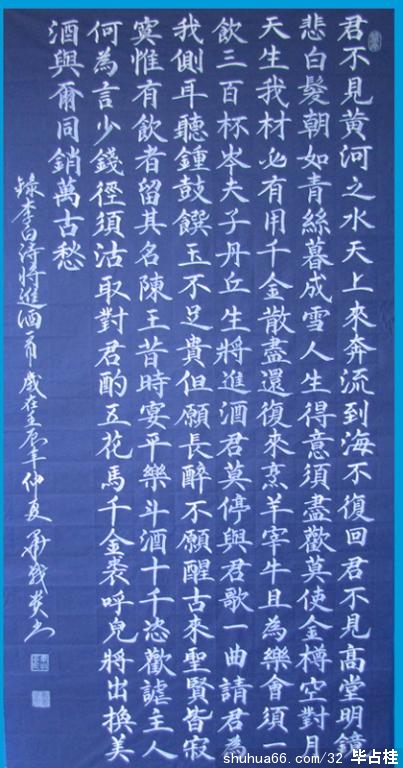 君不見黃河之水天上來奔流到海不復回君不見高堂明鏡
悲白髮朝如青絲暮成雪人生得意須盡歡莫使金樽空對月
天生我材必有用千金散盡還復來烹羊宰牛且為樂會須一
飲三百杯岑夫子丹丘生將進酒君莫停與君歌一曲請君為
我側耳聽鍾鼓饌玉不足貴但願長醉不願醒古來聖賢皆寂
寞惟有飲者留其名陳王昔時宴平樂斗酒十千恣歡謔主人
何為言少錢徑須沽取對君酌五花馬千金裘呼兒將出換美
酒與爾同銷萬古愁
錄李白詩將進酒 歲在 年仲夏
shuhua66.com/32 毕占桂